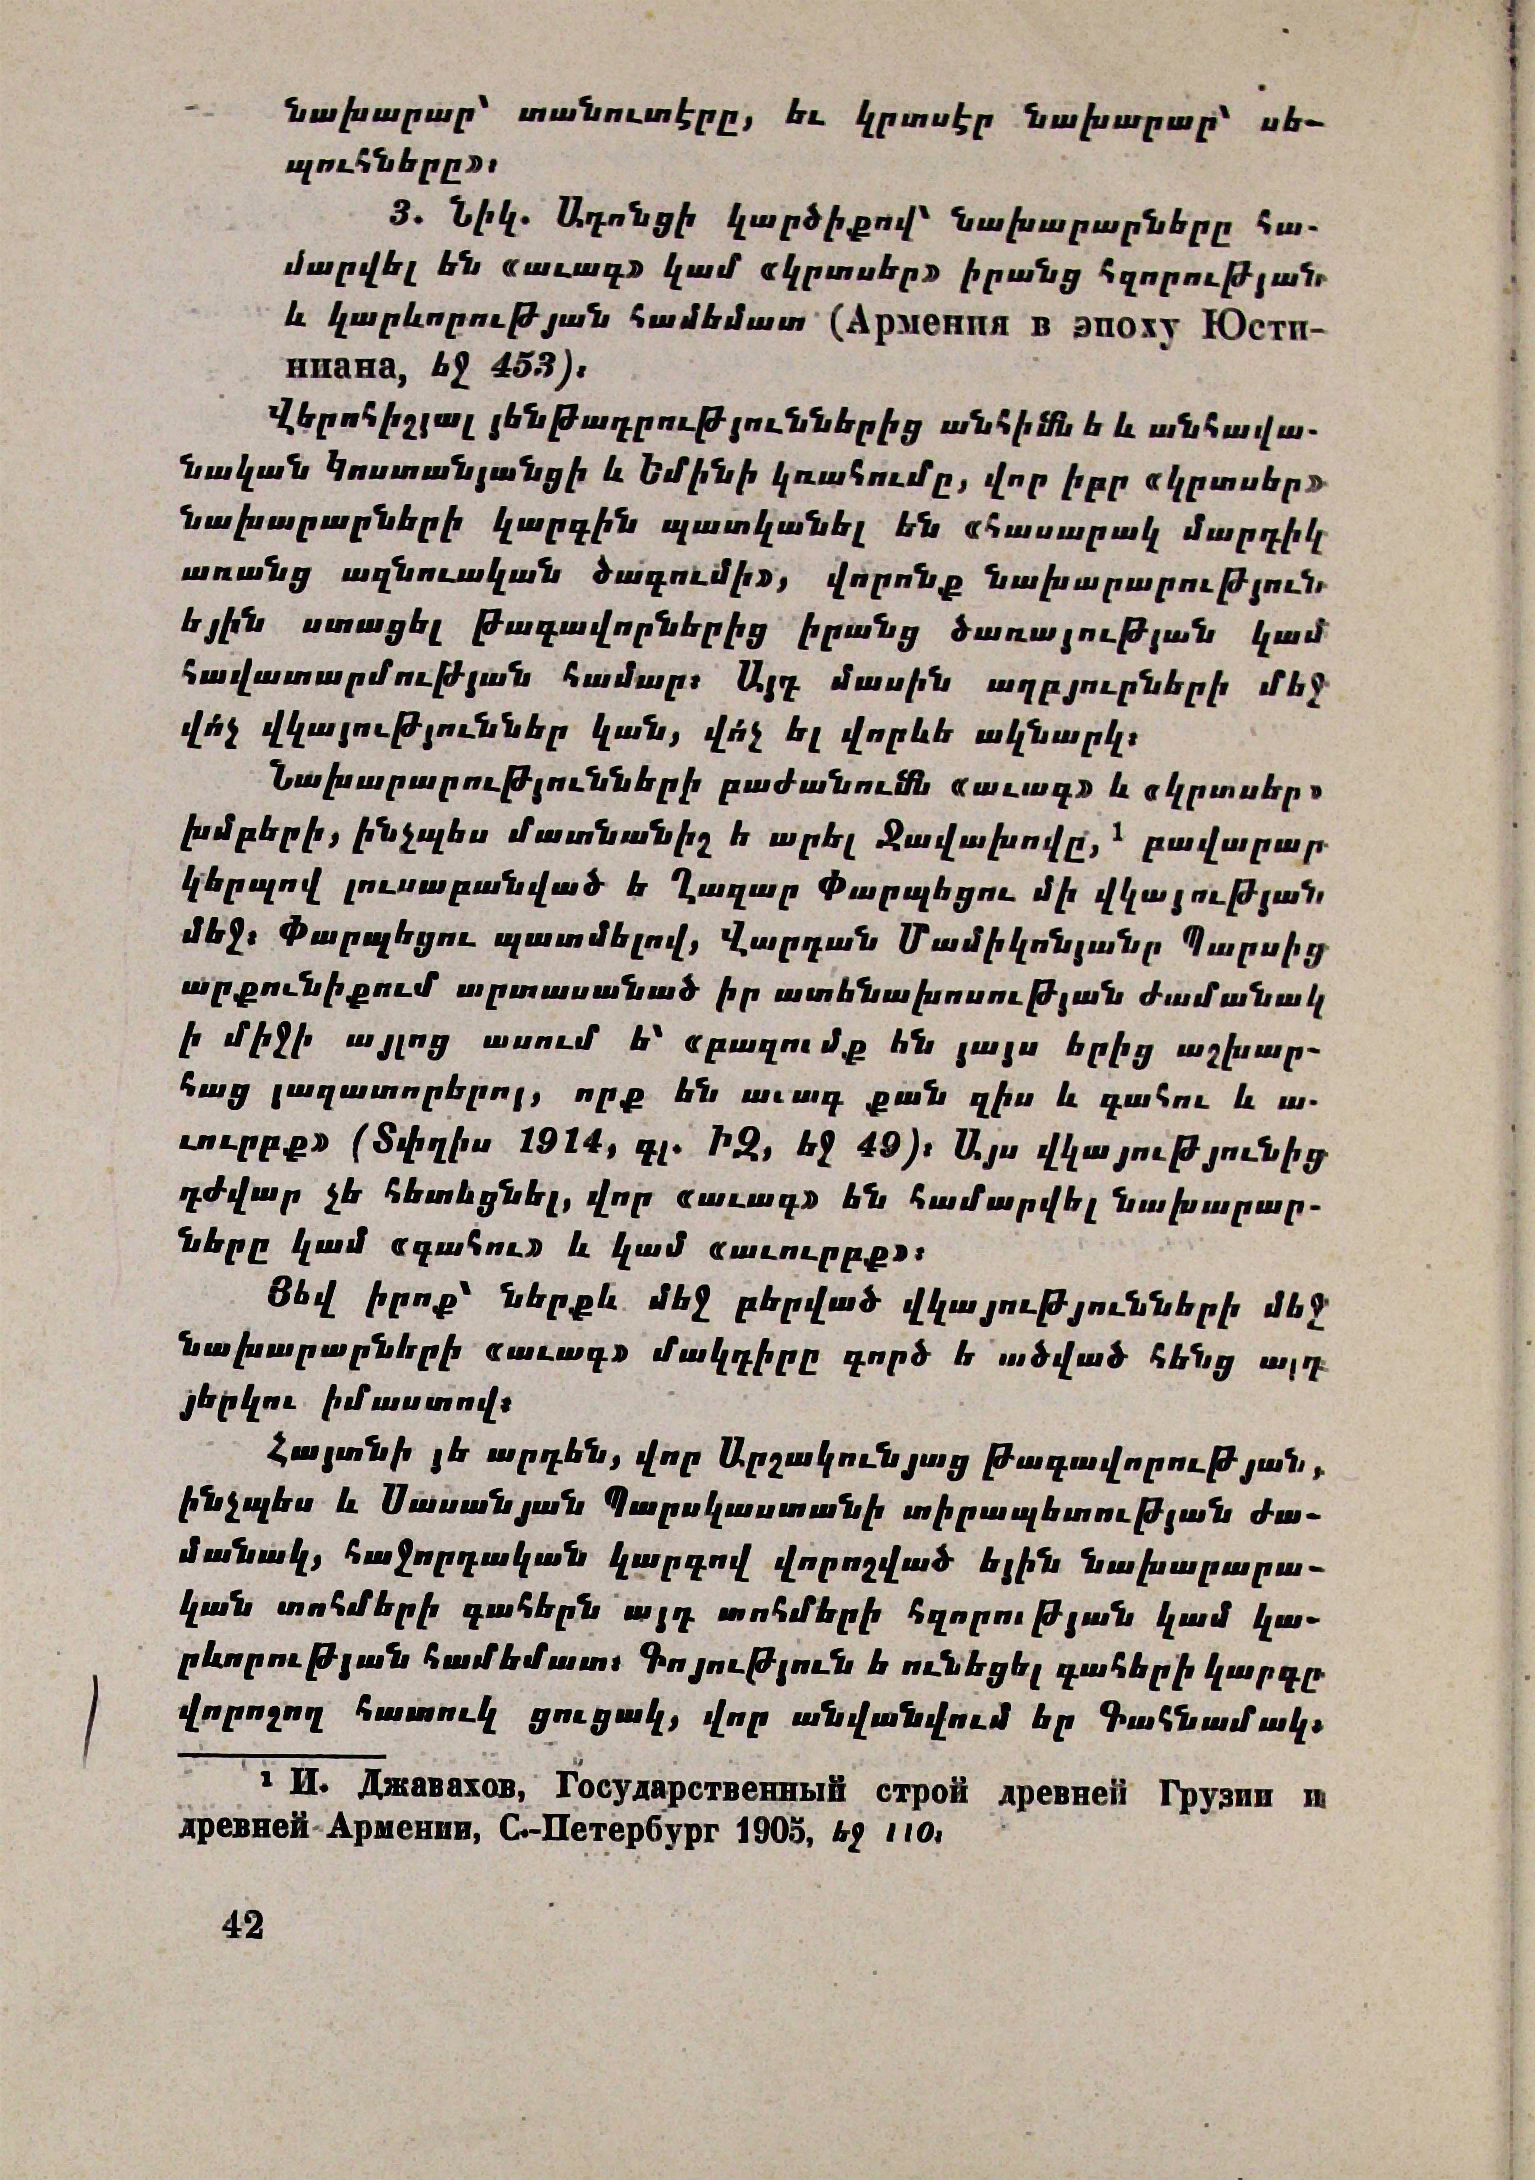 նախարար՝ տանուտէրը, եւ կրտսէր նախարար՝ սե-
պուհները»։
3. Նիկ. Ադոնցի կարծիքով՝ նախարարները հա-
մարվել են «աւագ» կամ «կրտսեր» իրանց հզորության
և կարևորության համեմատ (Армения в эпоху Юсти-
ниана, եջ 453)։
Վերոհիշյալ յենթադրություններից անհիմն ե և անհավա-
նական Կոստանյանցի և Եմինի կռահումը, վոր իբր «կրտսեր»
նախարարների կարգին պատկանել են «հասարակ մարդիկ
առանց ազնուական ծագումի», վորոնք նախարարություն
եյին ստացել թագավորներից իրանց ծառայության կամ
հավատարմության համար։ Այդ մասին աղբյուրների մեջ
վո՛չ վկայություններ կան, վո՛չ ել վորևե ակնարկ։
Նախարարությունների բաժանումն «աւագ» և «կրտսեր»
խմբերի, ինչպես մատնանիշ ե արել Ջավախովը,¹ բավարար
կերպով լուսաբանված ե Ղազար Փարպեցու մի վկայության
մեջ։ Փարպեցու պատմելով, Վարդան Մամիկոնյանը Պարսից
արքունիքում արտասանած իր ատենախոսության ժամանակ
ի միջի այլոց ասում ե՝ «բազումք են յայս երից աշխար-
հաց յաղատորերոյ, որք են աւագ քան զիս և գահու և ա-
ւուրբք» (Տփղիս 1914, գլ. ԻԶ, եջ 49)։ Այս վկայությունից
դժվար չե հետևցնել, վոր «աւագ» են համարվել նախարար-
ները կամ «գահու» և կամ «աւուրբք»։
Յեվ իրոք՝ ներքև մեջ բերված վկայությունների մեջ
նախարարների «աւագ» մակդիրը գործ ե ածված հենց այդ
յերկու իմաստով։
Հայտնի յե արդեն, վոր Արշակունյաց թագավորության,
ինչպես և Սասանյան Պարսկաստանի տիրապետության ժա-
մանակ, հաջորդական կարգով վորոշված եյին նախարարա-
կան տոհմերի գահերն այդ տոհմերի հզորության կամ կա-
րևորության համեմատ։ Գոյություն ե ունեցել գահերի կարգը
վորոշող հատուկ ցուցակ, վոր անվանվում եր Գահնամակ։
¹ И. Джавахов, Государственный строй древней Грузии и
древней Армении, С.-Петербург 1905, եջ 110։
42